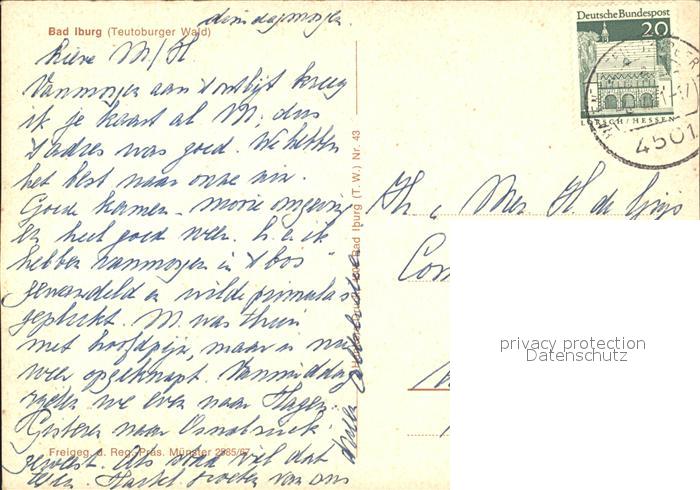 dinsdagmorgen
Bad Iburg (Teutoburger Wald)
Deutsche Bundespost
20
LORSCH/HESSEN
4501
Lieve M/H
Vanmorgen aan 't ontbijt kreeg
ik je kaart al M. dus
't adres was goed. We hebben
het best naar onze zin.
Goede kamer - mooie omgeving
en heel goed weer. H. en ik
hebben vanmorgen in 't bos
gewandeld en wilde primula's
geplukt. M. was thuis
met hoofdpijn, maar is nu
weer opgeknapt. Vanmiddag
we even naar Hagen.
Gisteren naar Osnabrück
geweest. Als wat dat
Hartel. groeten van ons
Bad Iburg (T. W.) Nr. 43
Hr. Mev. H. de
privacy protection
Datenschutz
Freigeg. d. Reg.-Präs. Münster 2585/67